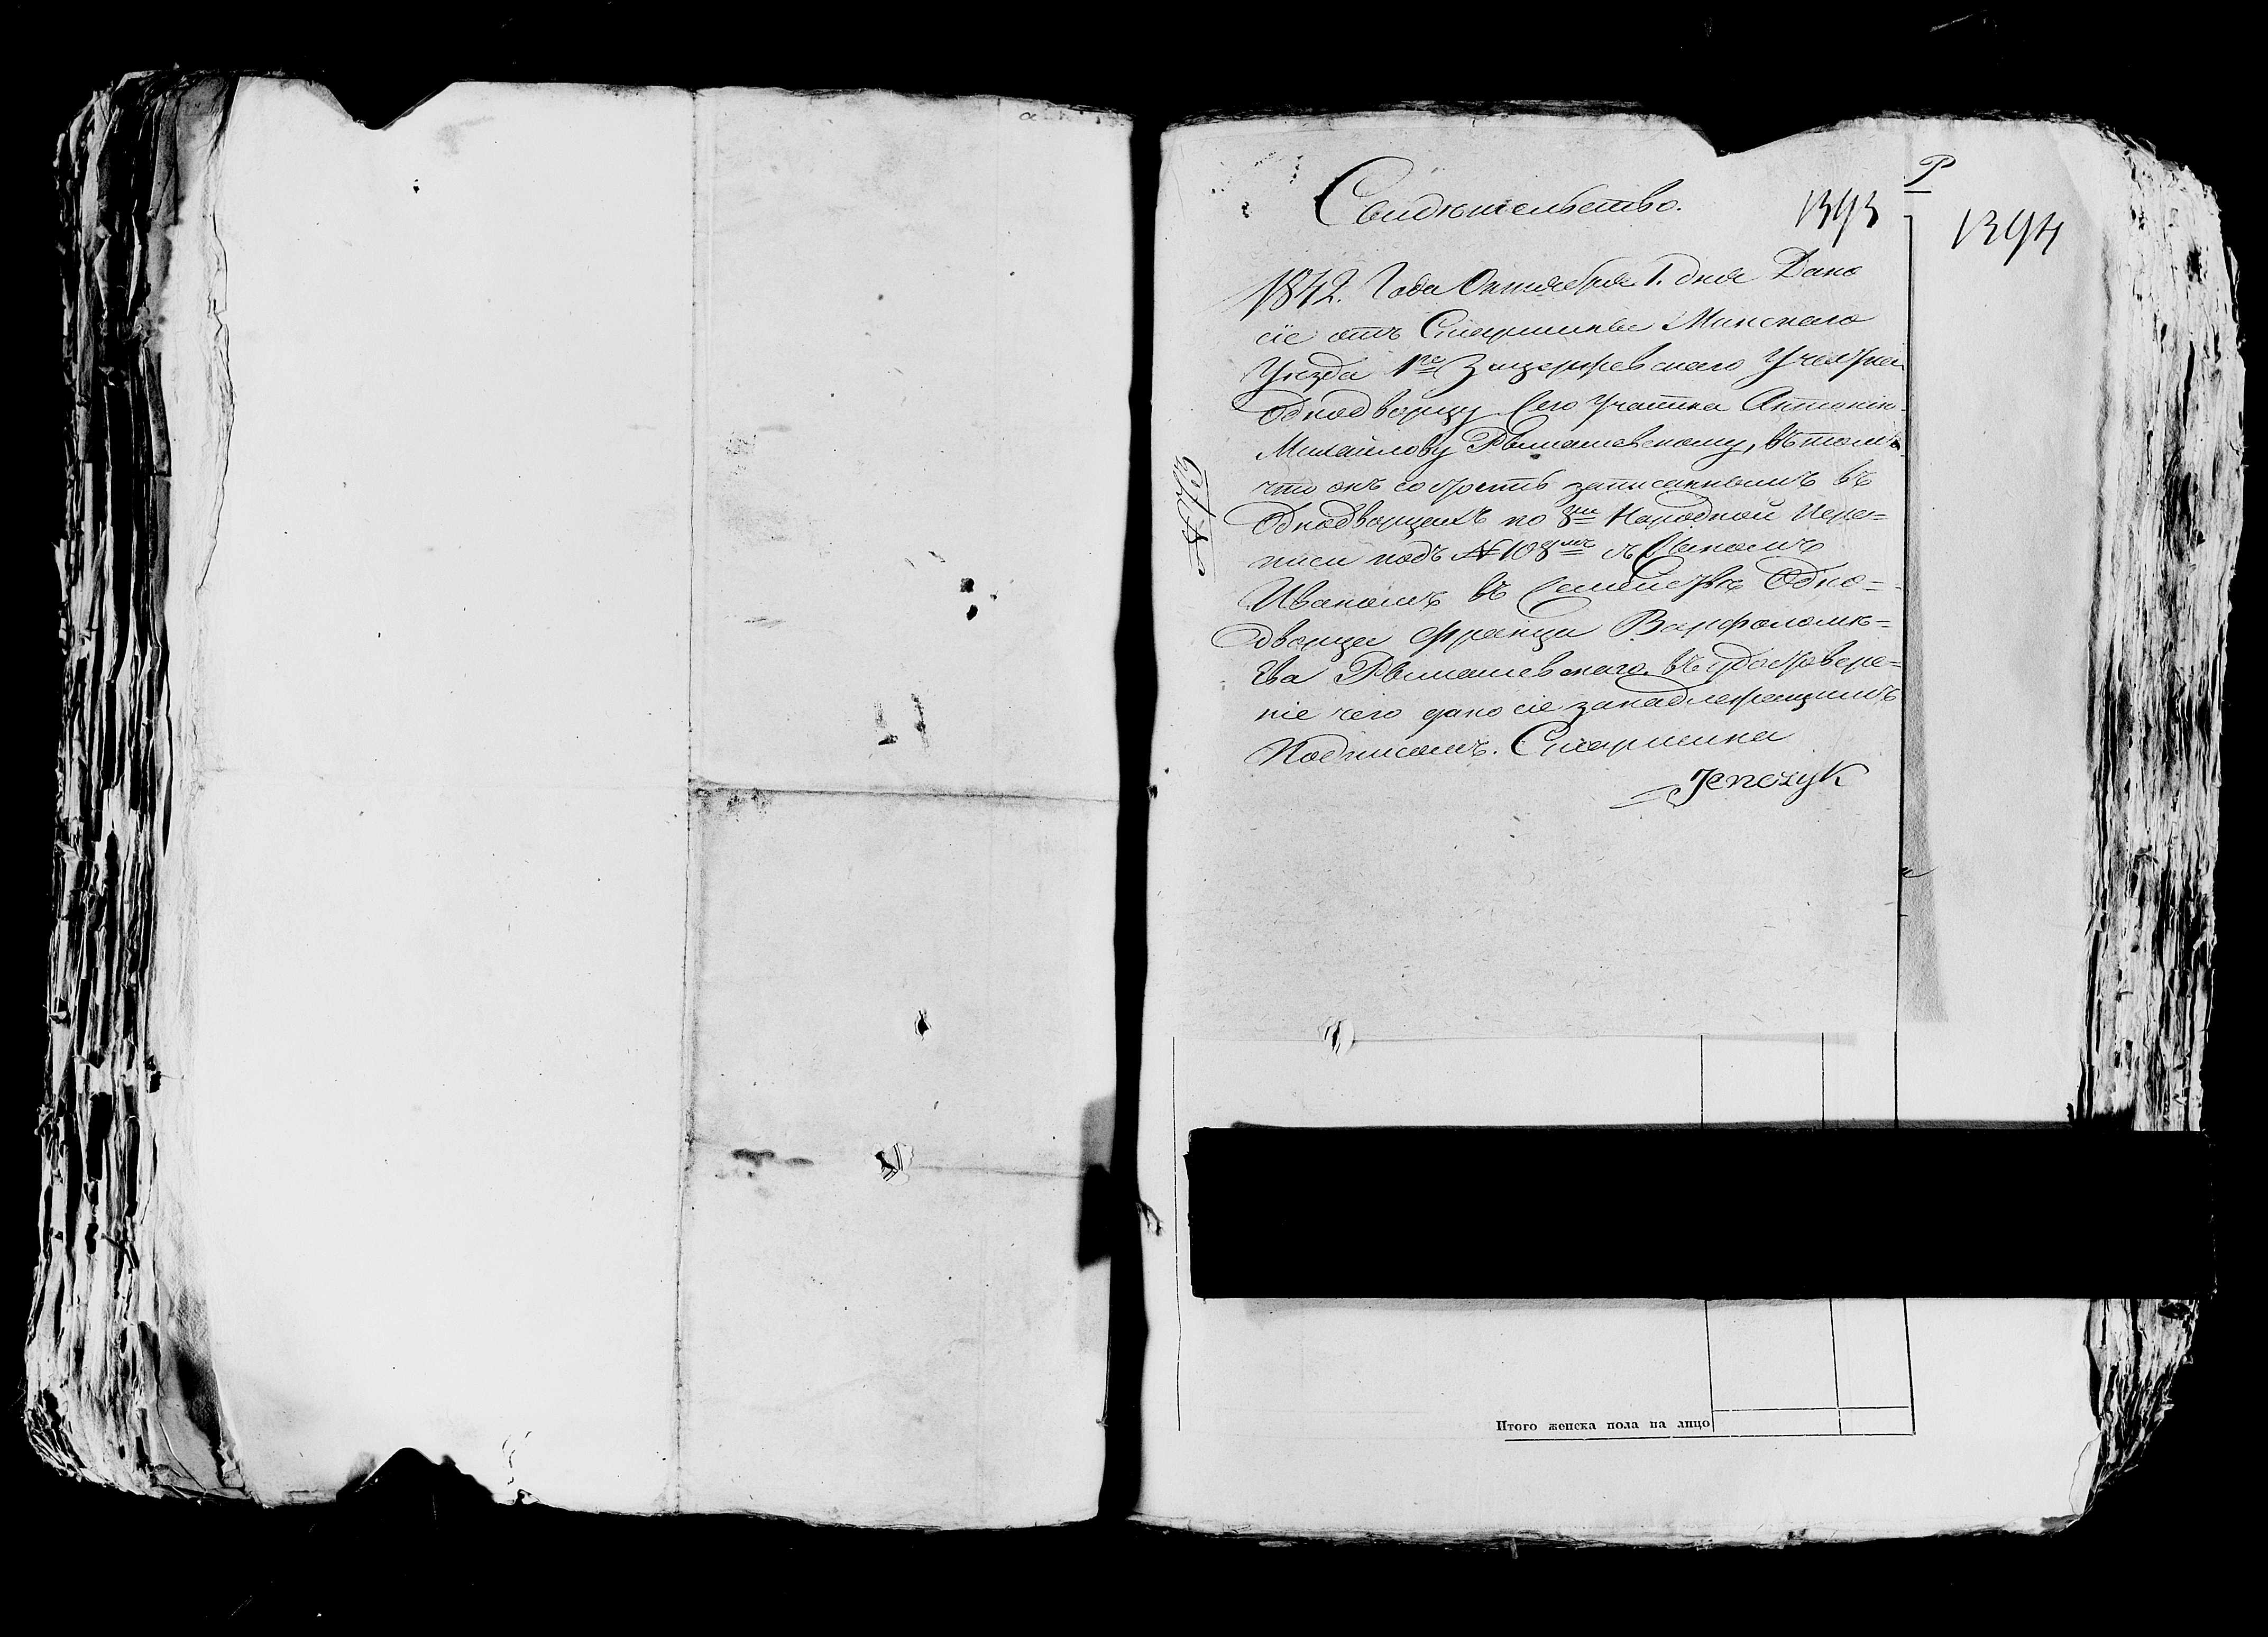 Свидѣтельство.
1393
Р
1394
1842. Года Октября 1. дня Дано
сіе отъ Старшины Минскаго
Уѣзда 1го Участка
Однодворцу сего Участка Антонію
Михайлову Рымашевскому, въ томъ
что онъ состоитъ записаннымъ въ
Однодворцахъ по 8й Народной Пере=
писи подъ № 108мъ съ Сыномъ
Иваномъ въ Семействѣ Одно=
дворца Франца Варфоломѣ=
ева Рымашевскаго. въ удостовере=
ніе чего дано сіе занадлежащимъ
Подписомъ. Старшина
Jenczyk
Итого женска пола на лицо